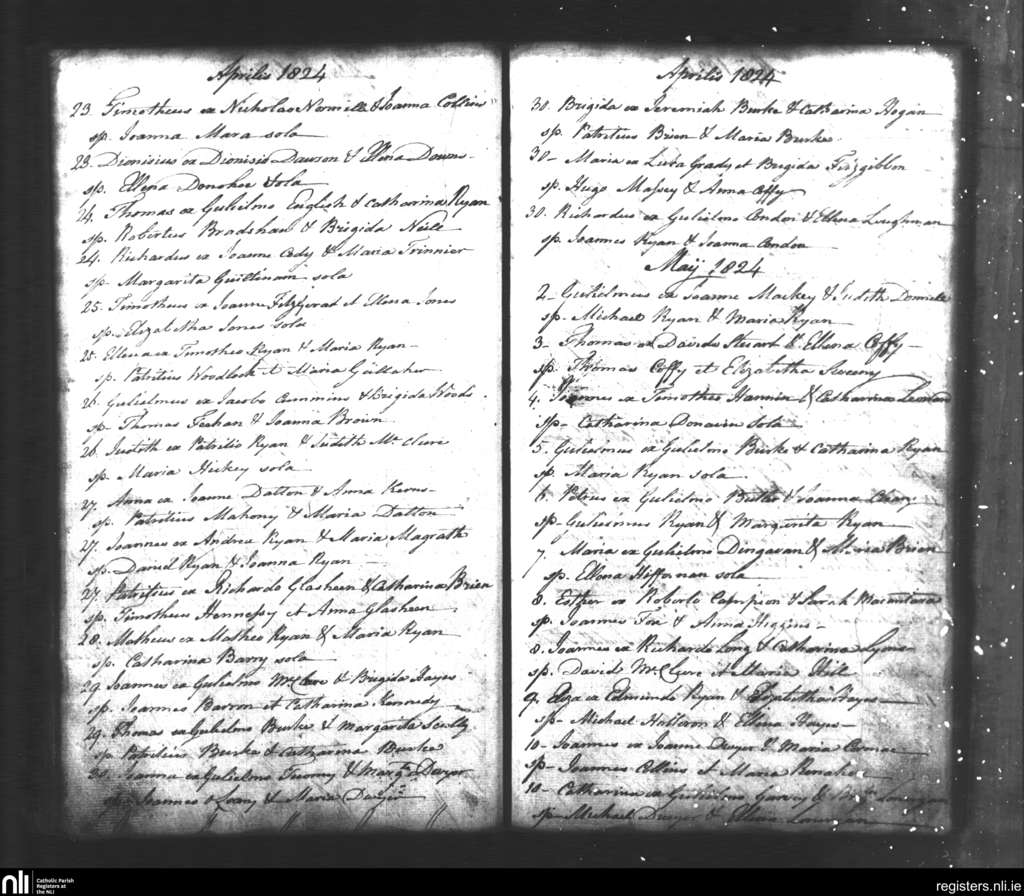 Aprilis 1824
23. Timotheus ex Nicholao & Joanna Collins
sp. Joanna Mara sola
23. Dionisius ex Dionisio Dawson & Ellena Downs
sp. Ellena Donohoe sola
24. Thomas ex Gulielmo English & Catharina Ryan
sp. Robertus Bradshaw & Brigida Neile
24. Richardus ex Joanne Cody & Maria Trinnier
sp. Margarita Guiltinam sola
25. Timotheus ex Joanne FitzGerad et Ellena Jones
sp. Elizabetha Jones sola
25. Ellena ex Timotheo Ryan & Maria Ryan
sp. Patritius Woodlock & Maria
26. Gulielmus ex Jacobo Cummins & Brigida Woods
sp. Thomas Feehan & Joanna Brown
26. Judith ex Patritio Ryan & Judith McClure
sp. Maria Hickey sola
27. Anna ex Joanne Dalton & Anna
sp. Patritius Mahony & Maria Dalton
27. Joannes ex Andrea Ryan & Maria Magrath
sp. Daniel Ryan & Joanna Ryan
27 Patritius ex Richardo Glasheen & Catharina Brien
sp. Timotheus Hennessy et Anna Glasheen
28. Matheus ex Matheo Ryan & Maria Ryan
sp. Catharina Barry sola
29 Joannes ex Gulielmo McClure & Brigida Hayes
sp. Joannes Barron et Catharina Kennedy
29. Thomas ex Gulielmo Burke & Margarita Scully
sp. Patritius Burke & Catharina Burke
30. Joanna ex Gulielmo & Margt Dwyer
sp. Joannes & Maria Dwyer
Aprilis 1824
30. Brigida ex Jeremiah Burke & Catharina Hogan
sp. Patritius Brien & Maria Burke
30 - Maria ex Luca Grady et Brigida Fitzgibbon
sp. Hugo Massey & Anna Coffy
30. Richardus ex Gulielmo Condon & Ellena Loughman
sp. Joannes Ryan & Joanna Condon
Maij 1824
2 - Gulielmus ex Joanne Mackey & Judith
sp. Michael Ryan & Maria Ryan
3 - Thomas ex Davide Stewart & Ellena Coffy
sp. Thomas Coffy et Elizabetha Sweeny
4. Joannes ex Timotheo & Catharina
sp - Catharina Donavin sola
5. Gulielmus ex Gulielmo Burke & Catharina Ryan
sp. Maria Ryan sola
6. Petrus ex Gulielmo Butler & Joanna
sp - Gulielmus Ryan & Margarita Ryan
7. Maria ex Gulielmo Dingavan & Maria Brien
sp. Ellena Heffernan sola
8. Esther ex Roberto & Sarah
sp. Joannes Fox & Anna Higgins
8. Joannes ex Richardo Long & Catharina Lyons
sp. David McClure et Maria Hill
9. Eliza ex Edmundo Ryan & Elizabetha Hayes
sp - Michael Holloron & Ellena Hayes
10 - Joannes ex Joanne Dwyer & Maria
sp - Joannes Collins et Maria
10 - Catharina ex Gulielmo Garvy &
sp - Michael Dwyer & Ellena
nli
Catholic Parish
Registers at
the NLI
registers.nli.ie